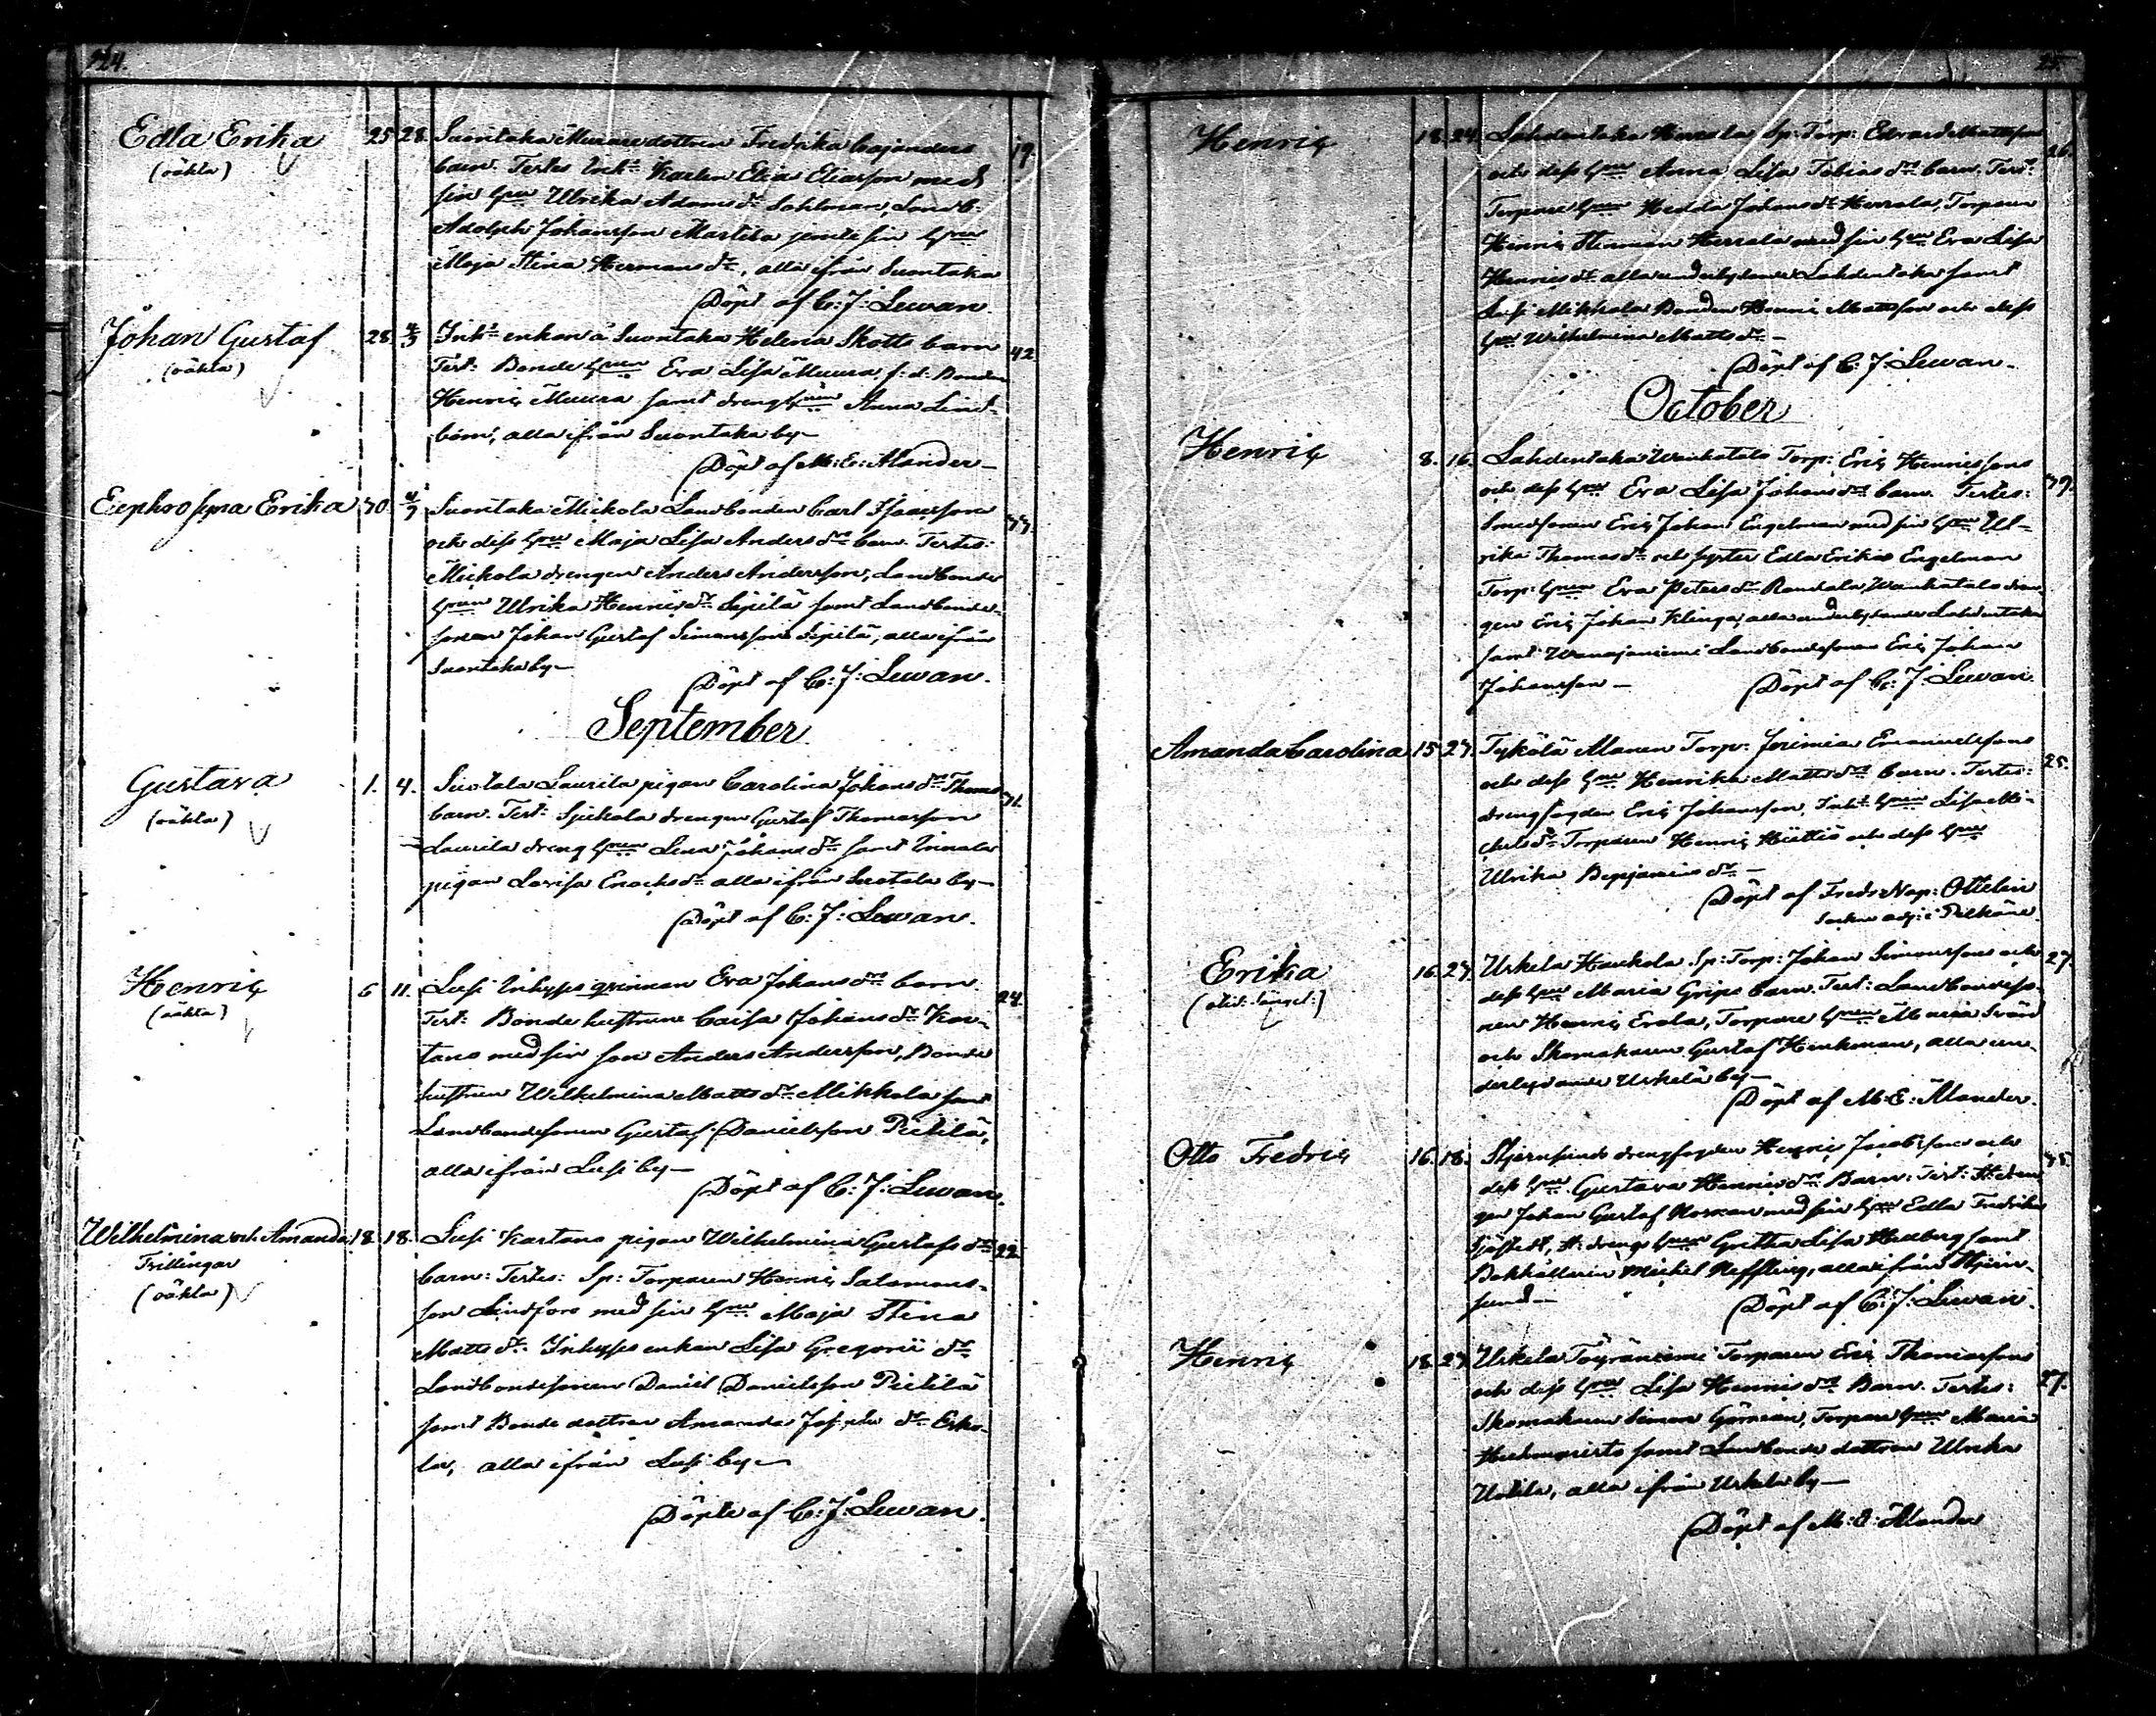 24.
Edla Erika 25 28. Suontaka Muurare dottren Fredrika Cajanders 19.
(oäkta) barn. Testes Inh: Karlen Elias Eliasson med
sin hu Ulrika Adams dr Sahlman, Landb:
Adolph Johansson Martila jemte sin hu
Maja Stina Hermans dr, alla ifrån Suontaka
Döpt af C: J: Lewan.
Johan Gustaf 28. 4/9 Inh: enkan å Suontaka Helena Skotts barn 42
(oäkta) Test: Bonde hun Eva Lisa Muura f: d: Bonden
Henric Muura samt dreng hun Anna Lind-
bom, alla ifrån Suontaka by—
Döpt af M: E: Ålander—
Euphrosyna Erika 30. 4/9 Suontaka Mickola Landbonden Carl Isaacsons 33.
och dess hu Maja Lisa Anders drs barn. Testes:
Mickola drengen Anders Andersson, Landbonde
hun Ulrika Henrics dr Sipilä samt Landbonde-
sonen Johan Gustaf Simonsson Sipilä, alla ifrån
Suontaka by—
Döpt af C: J: Lewan.
September
Gustava 1. 4. Suotala Laurila pigan Carolina Johans dr Thomas 31.
(oäkta) barn. Test: Sjukola drengen Gustaf Thomasson
Laurila dreng hun Lena Johans dr samt
pigan Lovisa Enochs dr alla ifrån Suotala by—
Döpt af C: J: Lewan.
Henric 6 11. Susi Inhyses qvinnan Eva Johans drs barn. 24.
(oäkta) Test: Bonde hustrun Caisa Johans dr Kar-
tano med sin son Anders Andersson, Bonde
hustrun Wilhelmina Matts dr Mikkola samt
Landbondesonen Gustaf Danielsson Pietilä,
alla ifrån Susi by—
Döpt af C: J: Lewan.
Wilhelmina och Amanda 18. 18. Susi Kartano pigan Wilhelmina Gustafs drs 22.
Tvillingar barn: Testes: Sp: Torparen Henric Salomons-
(oäkta) son Lindfors med sin hu Maja Stina
Matts dr. Inhyses enkan Lisa Gregorii dr
Landbondesonen Daniel Danielsson Pietilä
samt Bonde dottren Amanda Josephs dr Erko-
la, alla ifrån Susi by—
Döpte af C: J: Lewan.
25
Henric 18. 24. Lahdentaka Herrala Sp: Torp: Edvard Mattsson 26.
och dess hu Anna Lisa Tobias drs barn. Test:
Torpare hun Hedda Johans dr Herrala, Torparen
Henric Herrala med sin hu Eva Lisa
Henrics dr alla underlydande Lahdentaka samt
Susi Mikkola Bonden Henric Mattsson och dess
hu Wilhelmina Matts dr—
Döpt af C: J: Lewan.
October
Henric 8. 16. Lahdentaka Torp: Eric Henricssons 39.
och dess hu Eva Lisa Johans drs barn. Testes:
Smedsonen Eric Johan Engelman med sin hu Ul-
rika Thomas dr och syster Edla Erika Engelman
Torp: hun Eva Peters dr dren-
gen Eric Johan Klinga, alla underlydande Lahdentaka
samt Landbondesonen Eric Johan
Johansson— Döpt af C: J: Lewan.
Amanda Carolina 15 27. Tykölä Torp: Jeremia Emanuelssons 25.
och dess hu Henrika Matts drs barn. Testes:
drengfogden Eric Johansson, Inh: hun Lisa Mi-
chels dr Torparen Henric och dess hu
Ulrika Benjamins dr—
Döpt af Fredr: Nap: Ottelin
Sockne adj: i Pelkäne.
Erika 16. 27. Urkela Haukola Sp: Torp: Johan Simonssons och 27.
dess hu Maria Grips barn. Test: Landbondeso-
nen Henric Erola, Torpare hun Maria
och Skomakaren Gustaf Henkman, alla un-
derlydande Urkela by—
Döpt af M: E: Ålander.
Otto Fredric 16. 18. Stjernsunds drengfogden Henric Jacobssons och 35.
dess hu Gustava Henrics drs Barn: Test: St: dren
gen Johan Gustaf Norrman med sin hu Edla Fredrika
Sjöstedt, St: drengs hun Gretha Lisa Hedberg samt
Bokhållaren Michel Neffling, alla ifrån Stjern-
sund— Döpt af C: J: Lewan.
Henric 18. 27. Urkela Töyränsemi Torparen Eric Thomassons 27.
och dess hu Lisa Henrics drs Barn. Testes:
Skomakaren Simon Torpare hun Maria
samt Landbonde dottren Ulrika
Uotila, alla ifrån Urkela by—
Döpt af M: E: Ålander